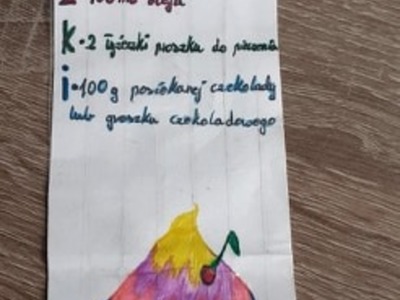 100ml oleju
K • 2 łyżeczki proszku do pieczenia
i • 100 g posiekanej czekolady
lub groszku czekoladowego